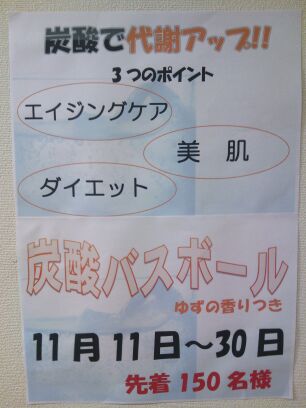 炭酸で代謝アップ!!
3つのポイント
エイジングケア
美 肌
ダイエット
炭酸バスボール
ゆずの香りつき
11月11日～30日
先着150名様